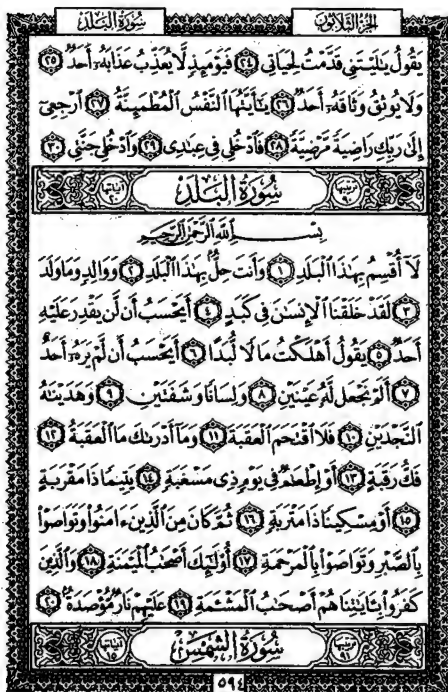 الجزء الثلاثون سورة البلد
يَقُولُ يَٰلَيْتَنِى قَدَّمْتُ لِحَيَاتِى ٢٤ فَيَوْمَئِذٍ لَّا يُعَذِّبُ عَذَابَهُۥٓ أَحَدٌ ٢٥
وَلَا يُوثِقُ وَثَاقَهُۥٓ أَحَدٌ ٢٦ يَٰٓأَيَّتُهَا ٱلنَّفْسُ ٱلْمُطْمَئِنَّةُ ٢٧ ٱرْجِعِىٓ
إِلَىٰ رَبِّكِ رَاضِيَةً مَّرْضِيَّةً ٢٨ فَٱدْخُلِى فِى عِبَٰدِى ٢٩ وَٱدْخُلِى جَنَّتِى ٣٠
ترتيبها ٩٠ سورة البلد آياتها ٢٠
بِسْمِ ٱللَّهِ ٱلرَّحْمَٰنِ ٱلرَّحِيمِ
لَآ أُقْسِمُ بِهَٰذَا ٱلْبَلَدِ ١ وَأَنتَ حِلٌّۢ بِهَٰذَا ٱلْبَلَدِ ٢ وَوَالِدٍ وَمَا وَلَدَ
٣ لَقَدْ خَلَقْنَا ٱلْإِنسَٰنَ فِى كَبَدٍ ٤ أَيَحْسَبُ أَن لَّن يَقْدِرَ عَلَيْهِ
أَحَدٌ ٥ يَقُولُ أَهْلَكْتُ مَالًا لُّبَدًا ٦ أَيَحْسَبُ أَن لَّمْ يَرَهُۥٓ أَحَدٌ
٧ أَلَمْ نَجْعَل لَّهُۥ عَيْنَيْنِ ٨ وَلِسَانًا وَشَفَتَيْنِ ٩ وَهَدَيْنَٰهُ
ٱلنَّجْدَيْنِ ١٠ فَلَا ٱقْتَحَمَ ٱلْعَقَبَةَ ١١ وَمَآ أَدْرَىٰكَ مَا ٱلْعَقَبَةُ ١٢
فَكُّ رَقَبَةٍ ١٣ أَوْ إِطْعَٰمٌ فِى يَوْمٍ ذِى مَسْغَبَةٍ ١٤ يَتِيمًا ذَا مَقْرَبَةٍ
١٥ أَوْ مِسْكِينًا ذَا مَتْرَبَةٍ ١٦ ثُمَّ كَانَ مِنَ ٱلَّذِينَ ءَامَنُوا۟ وَتَوَاصَوْا۟
بِٱلصَّبْرِ وَتَوَاصَوْا۟ بِٱلْمَرْحَمَةِ ١٧ أُو۟لَٰٓئِكَ أَصْحَٰبُ ٱلْمَيْمَنَةِ ١٨ وَٱلَّذِينَ
كَفَرُوا۟ بِـَٔايَٰتِنَا هُمْ أَصْحَٰبُ ٱلْمَشْـَٔمَةِ ١٩ عَلَيْهِمْ نَارٌ مُّؤْصَدَةٌۢ ٢٠
ترتيبها ٩١ سورة الشمس آياتها ١٥
٥٩٤